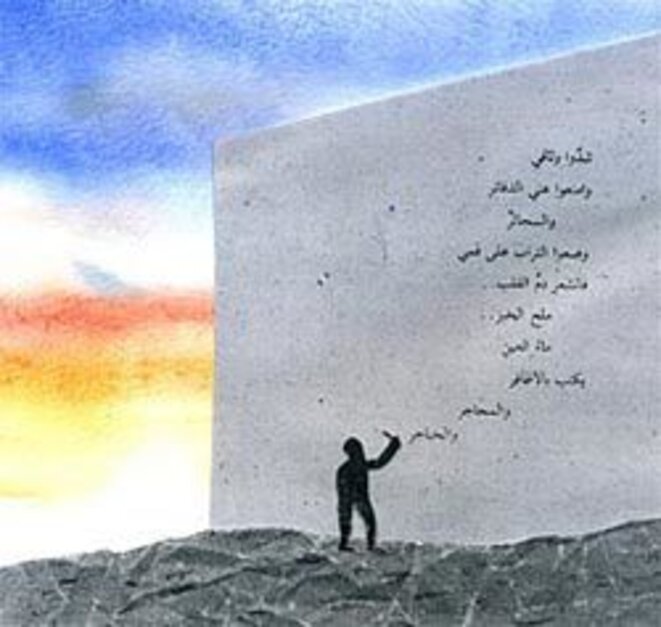 شدّوا وثاقي
وامنعوا عني الدفاتر
والسجائرْ
وضعوا التراب على فمي
فالشعر دمُ القلب ..
ملح الخبز ..
ماء العين
يكتب بالأظافر
والمحاجر
والخناجر